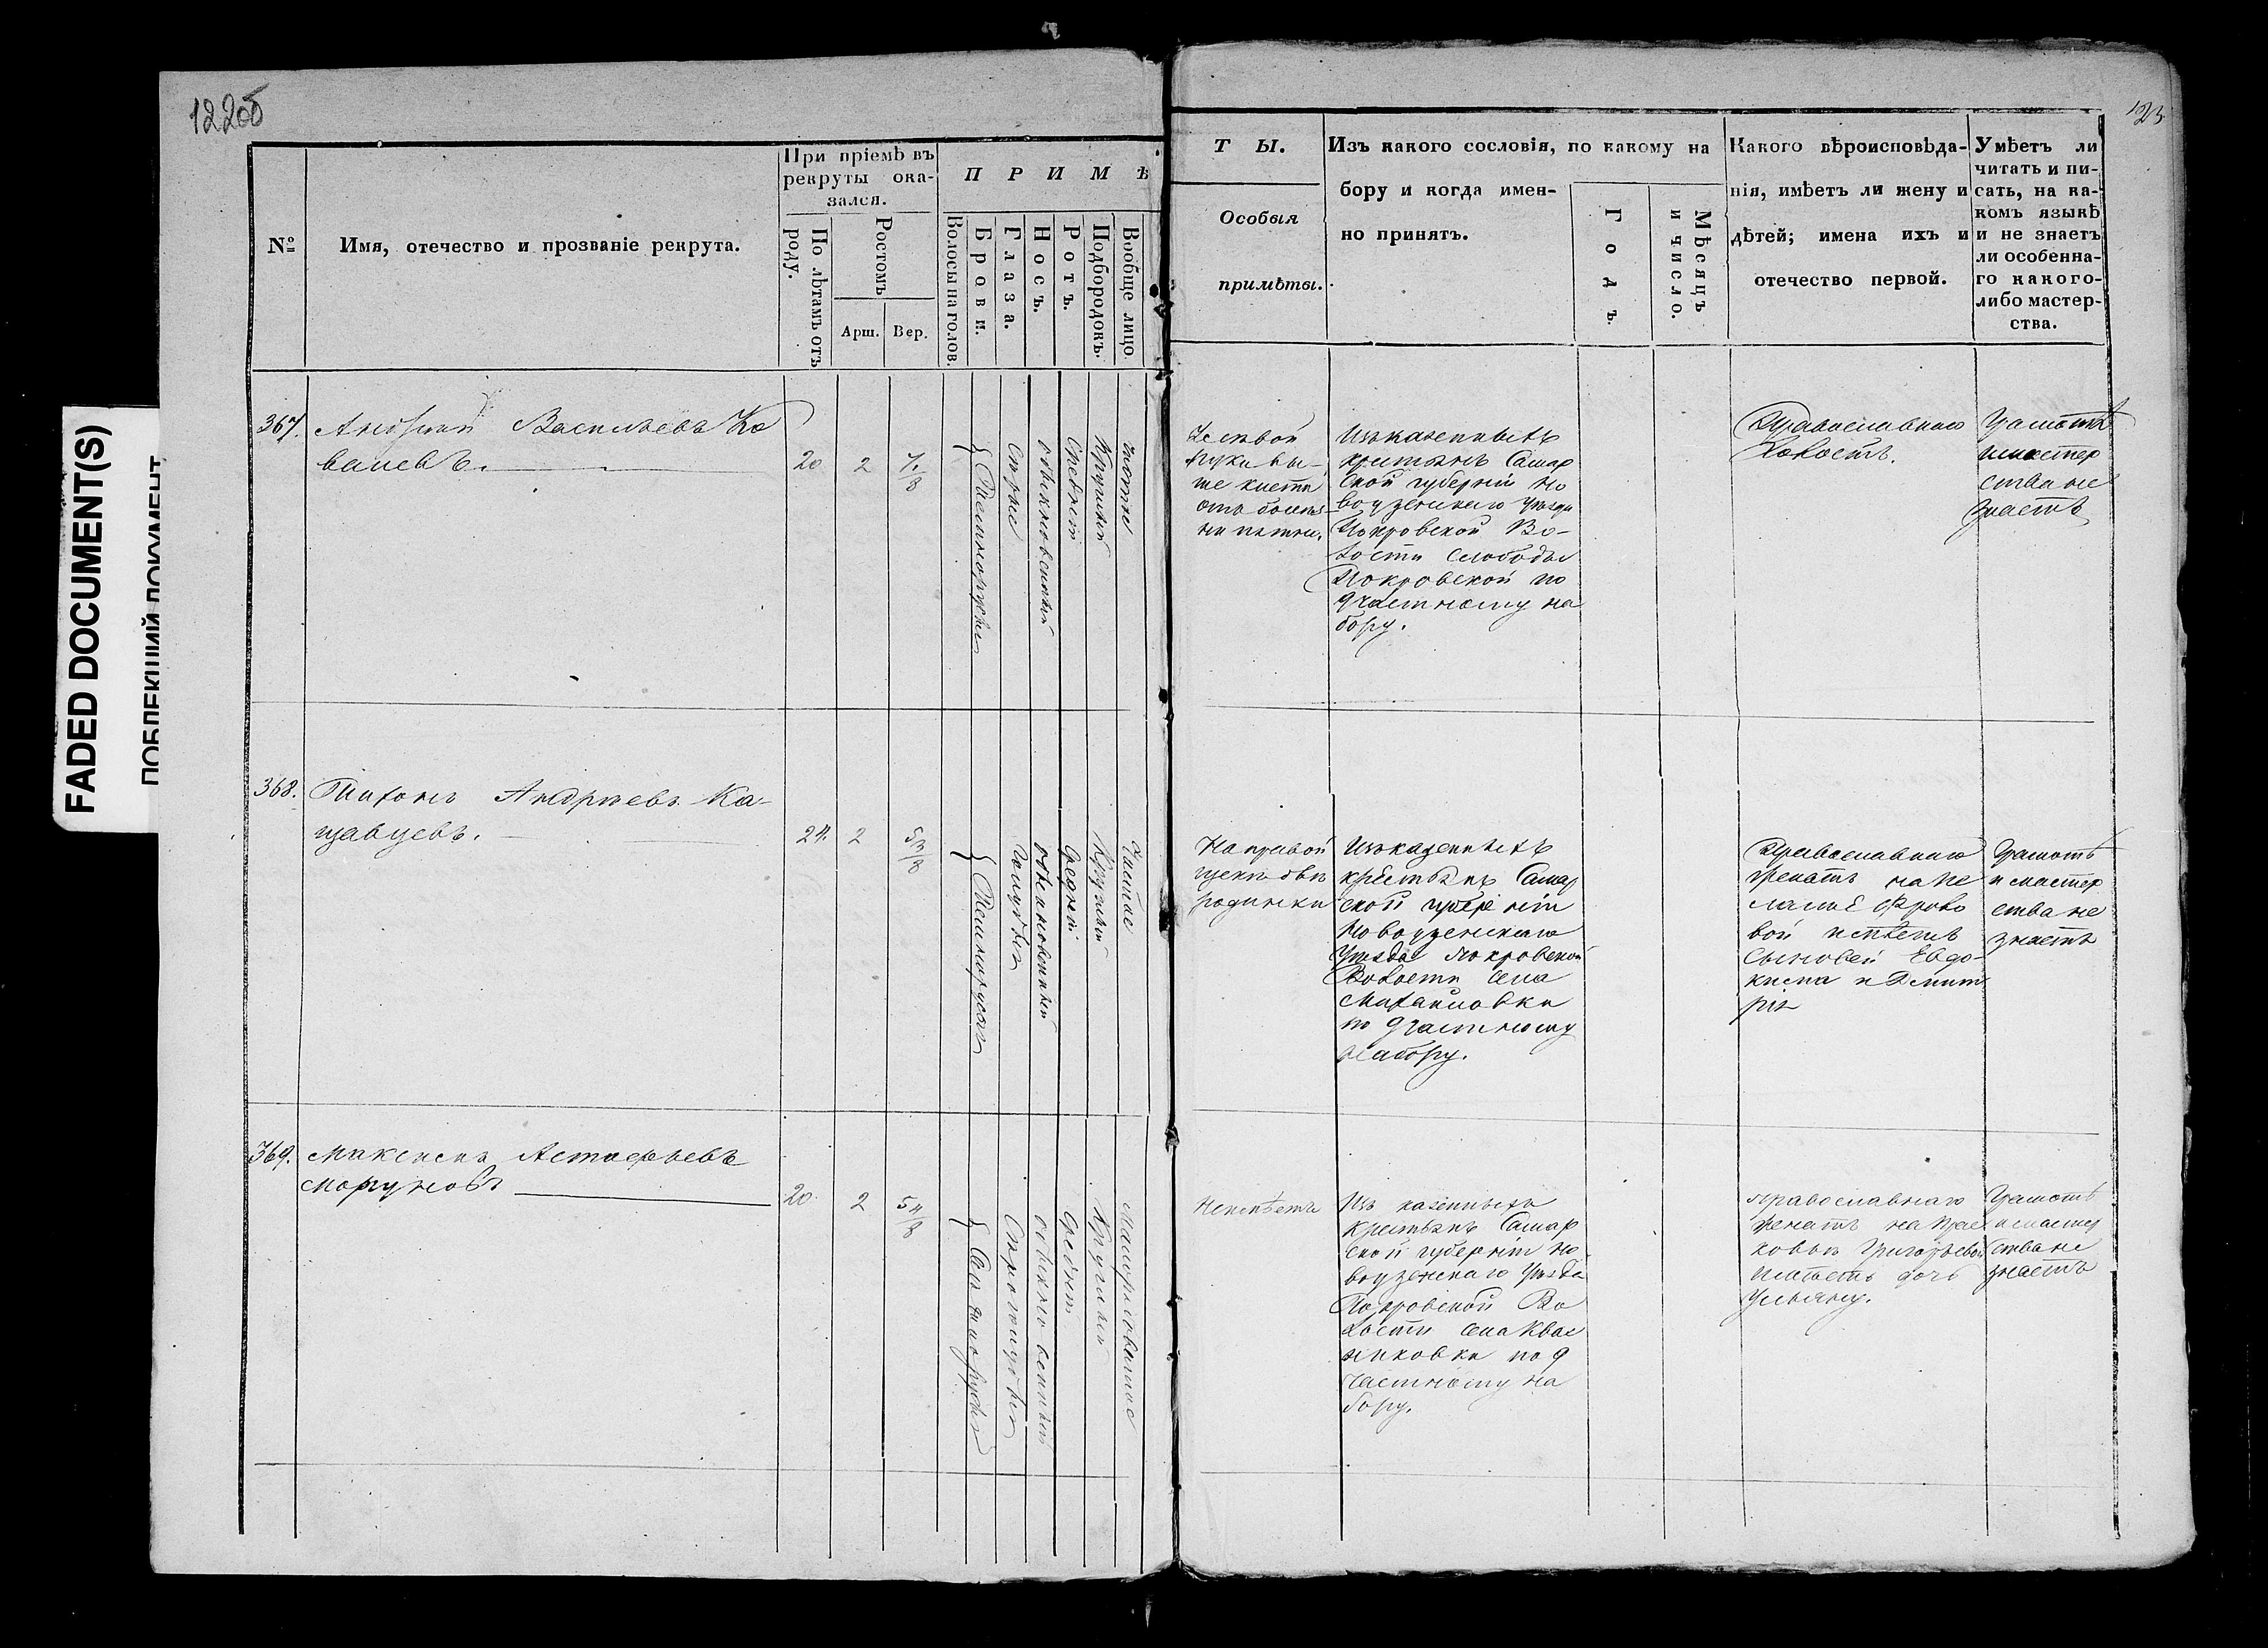 122об
123
FADED DOCUMENT(S)
ПОБЛЕКШИЙ ДОКУМЕНТ
№
Имя, отечество и прозваніе рекрута.
При пріемѣ въ
рекруты ока-
зался.
По лѣтамъ отъ
роду.
Ростомъ
Арш.
Вер.
П Р И М Ѣ
Волосы на голов.
Брови.
Глаза.
Носъ.
Ротъ.
Подбородокъ.
Вообще лицо.
Т Ы.
Особыя
примѣты.
Изъ какого сословія, по какому на
бору и когда имен-
но принятъ.
Годъ.
Мѣсяцъ
и число.
Какого вѣроисповѣда-
нія, имѣетъ ли жену и
дѣтей; имена ихъ и
отечество первой.
Умѣетъ ли
читать и пи-
сать, на ка-
комъ языкѣ
и не знаетъ
ли особенна-
го какого-
либо мастер-
ства.
367.
Васильевъ Ко
валевъ.
20
2
7/8
Темнорусые
Сѣрые
обыкновенный
Средній
Круглый
руки вы-
ше кисти
пятны.
Изъ казенныхъ
крестьянъ Самар
ской губерніи Но
воузенскаго уѣзда
Покровской Во-
лости слободы
Покровской по
9 частному на
бору.
Православнаго
Холостъ.
Грамотѣ
и мастер
ства не
знаетъ
368.
Тихонъ Андреевъ Ка-
24.
2
5 3/8
Темнорусые
Голубые
обыкновенный
Средній
Круглый
Чистое
На правой
щекѣ двѣ
родинки
Изъ казенныхъ
крестьянъ Самар
ской губерніи
Новоузенскаго
уѣзда Покровской
Волости села
Михайловки
по 9 частному
набору.
Православнаго
женатъ на Пе
лагеѣ Фроло
вой имѣетъ
сыновей Евдо-
кима и Дмит
рія
Грамотѣ
и мастер
ства не
знаетъ
369.
Максимъ Астафьевъ
Моргуновъ
20.
2
5 4/8
Свѣтлорусые
Сѣроголубые
обыкновенный
Средній
Круглый
Неимѣетъ
Изъ казенныхъ
крестьянъ Самар
ской губерніи Но-
воузенскаго уѣзда
Покровской Во
лости села Квас
никовки по 9
частному на
бору.
Православнаго
женатъ на Прас
ковьи Григорьевой
имѣетъ дочь
Ульяну.
Грамотѣ
и мастер
ства не
знаетъ